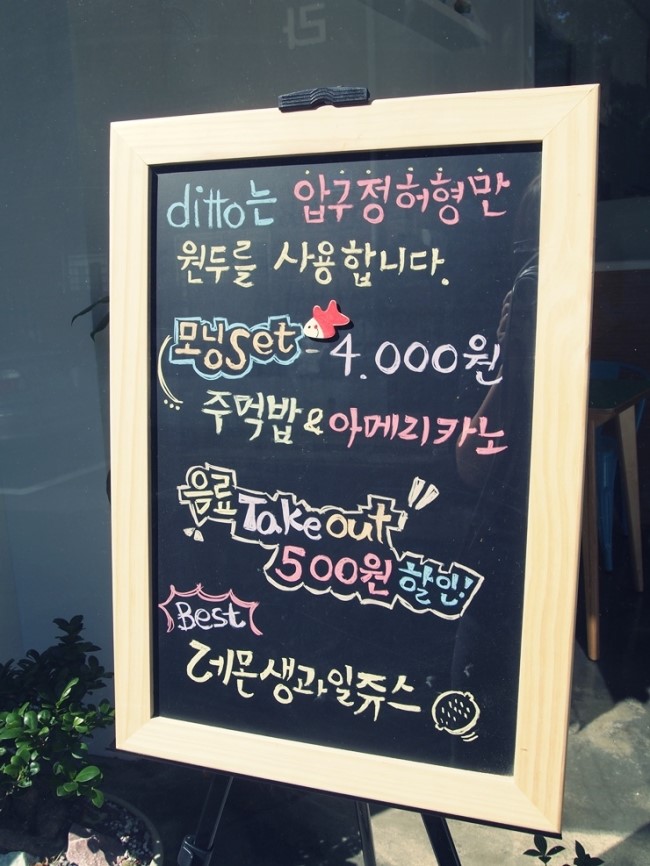 ditto는 압구정허형만
원두를 사용합니다.
모닝set - 4.000원
주먹밥 & 아메리카노
음료 Take out
500원 할인!
Best
레몬생과일쥬스